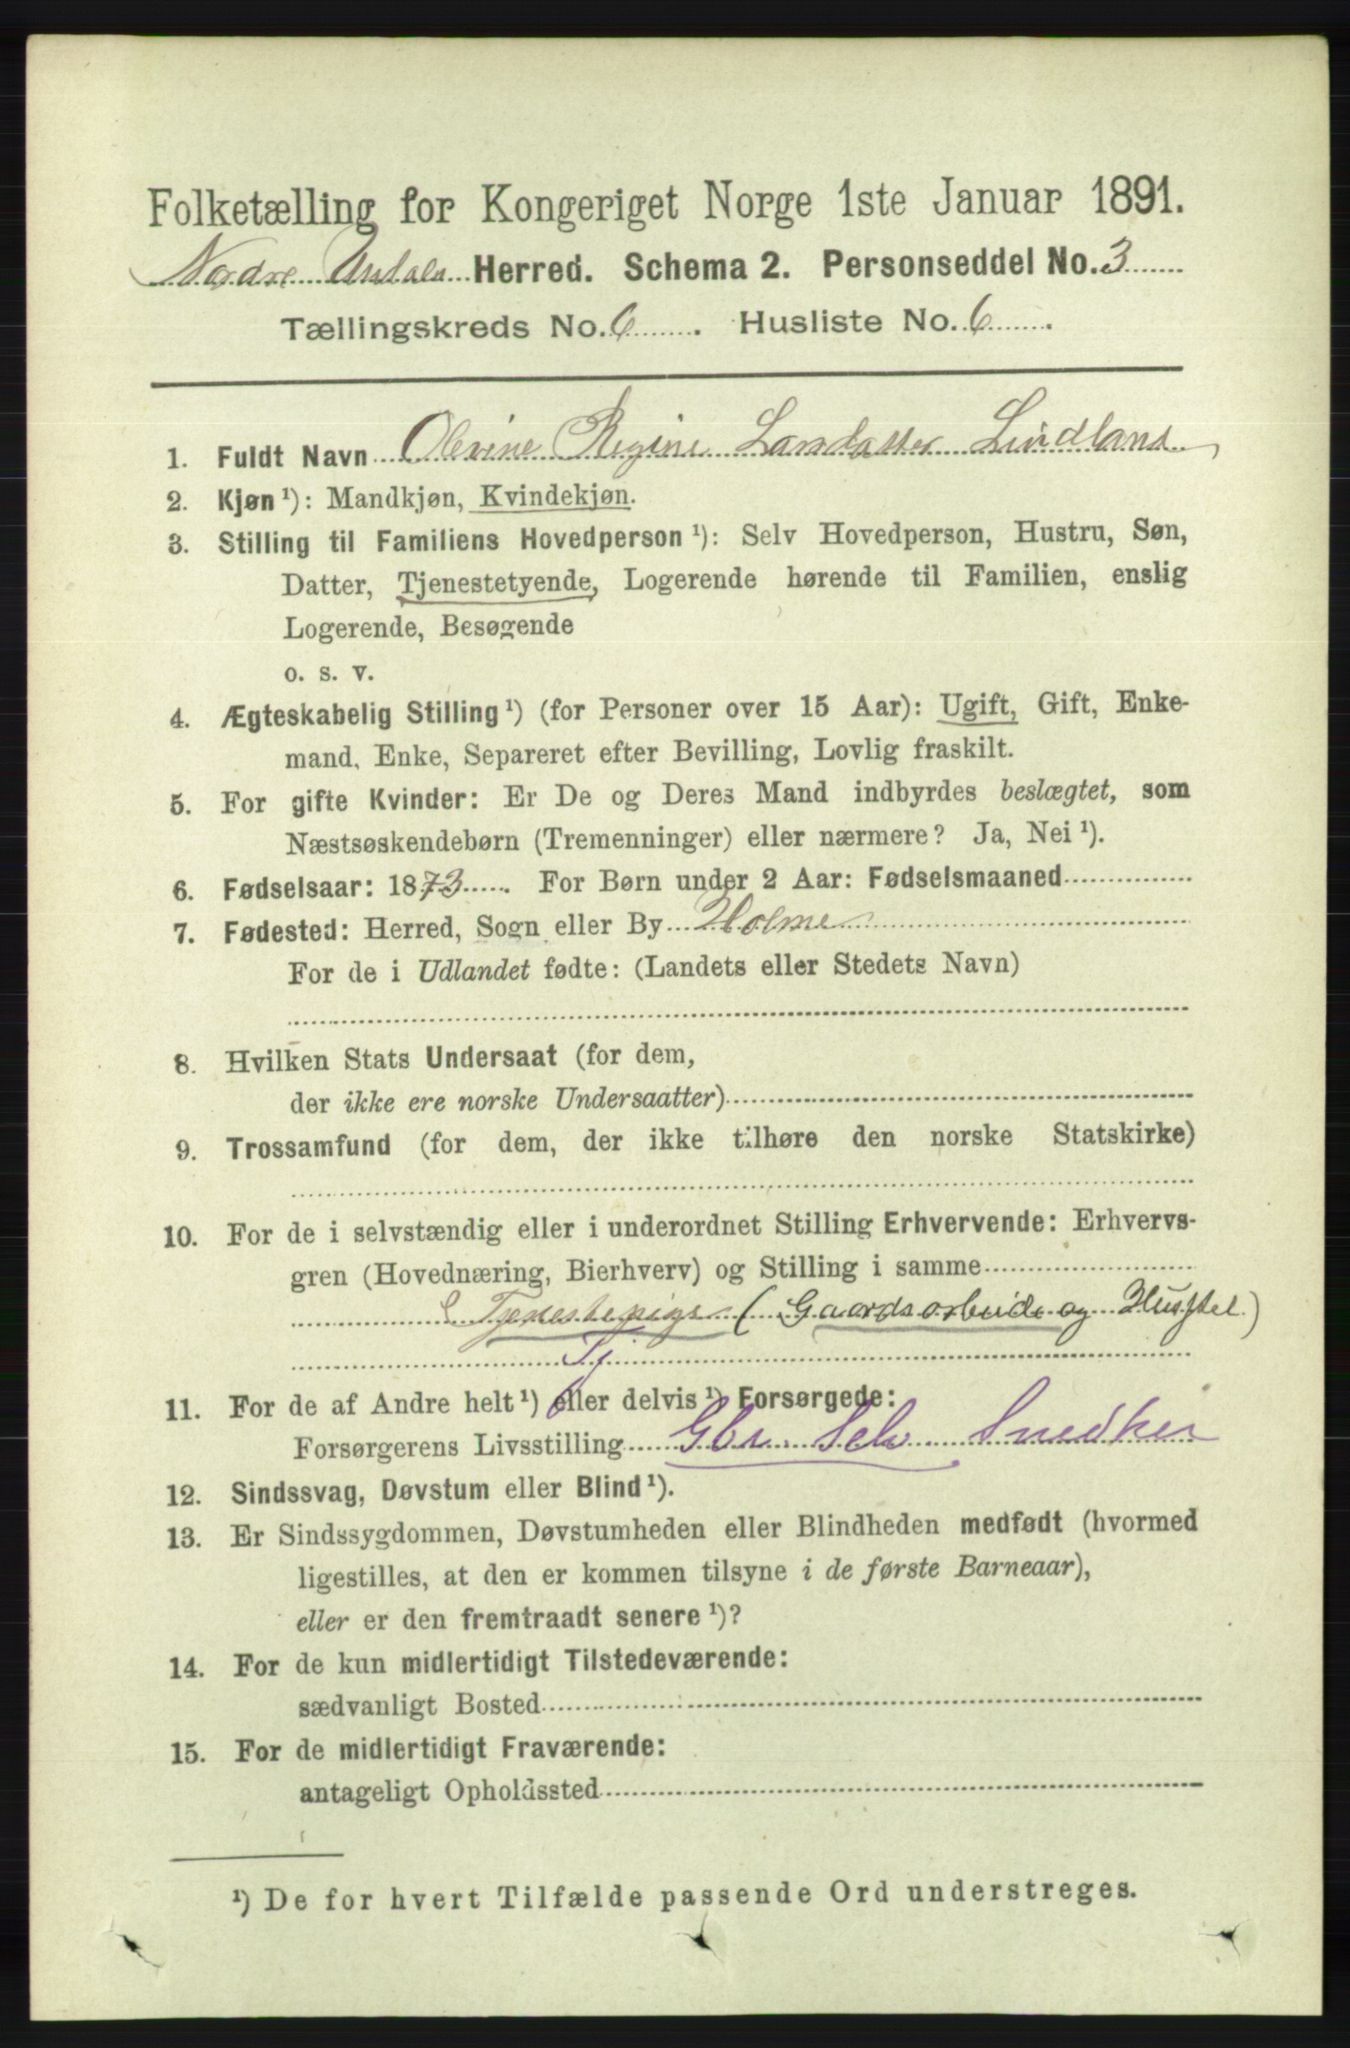 Folketælling for Kongeriget Norge 1ste Januar 1891.
Nordre Undals Herred. Schema 2. Personseddel No. 3
Tællingskreds No. 6. Husliste No. 6.
1. Fuldt Navn Olevine Regine Larsdatter Lindland
2. Kjøn ¹): Mandkjøn, Kvindekjøn.
3. Stilling til Familiens Hovedperson ¹): Selv Hovedperson, Hustru, Søn,
Datter, Tjenestetyende, Logerende hørende til Familien, enslig
Logerende, Besøgende
o. s. v.
4. Ægteskabelig Stilling ¹) (for Personer over 15 Aar): Ugift, Gift, Enke-
mand, Enke, Separeret efter Bevilling, Lovlig fraskilt.
5. For gifte Kvinder: Er De og Deres Mand indbyrdes beslægtet, som
Næstsøskendebørn (Tremenninger) eller nærmere? Ja, Nei ¹).
6. Fødselsaar: 1873. For Børn under 2 Aar: Fødselsmaaned
7. Fødested: Herred, Sogn eller By Holme
For de i Udlandet fødte: (Landets eller Stedets Navn)
8. Hvilken Stats Undersaat (for dem,
der ikke ere norske Undersaatter)
9. Trossamfund (for dem, der ikke tilhøre den norske Statskirke)
10. For de i selvstændig eller i underordnet Stilling Erhvervende: Erhvervs-
gren (Hovednæring, Bierhverv) og Stilling i samme
Tjenestepige (Gaardsarbeide og Husstel)
Tj
11. For de af Andre helt ¹) eller delvis ¹) Forsørgede:
Forsørgerens Livsstilling Gbr. Selv Snedker
12. Sindssvag, Døvstum eller Blind ¹).
13. Er Sindssygdommen, Døvstumheden eller Blindheden medfødt (hvormed
ligestilles, at den er kommen tilsyne i de første Barneaar),
eller er den fremtraadt senere ¹)?
14. For de kun midlertidigt Tilstedeværende:
sædvanligt Bosted
15. For de midlertidigt Fraværende:
antageligt Opholdssted
¹) De for hvert Tilfælde passende Ord understreges.